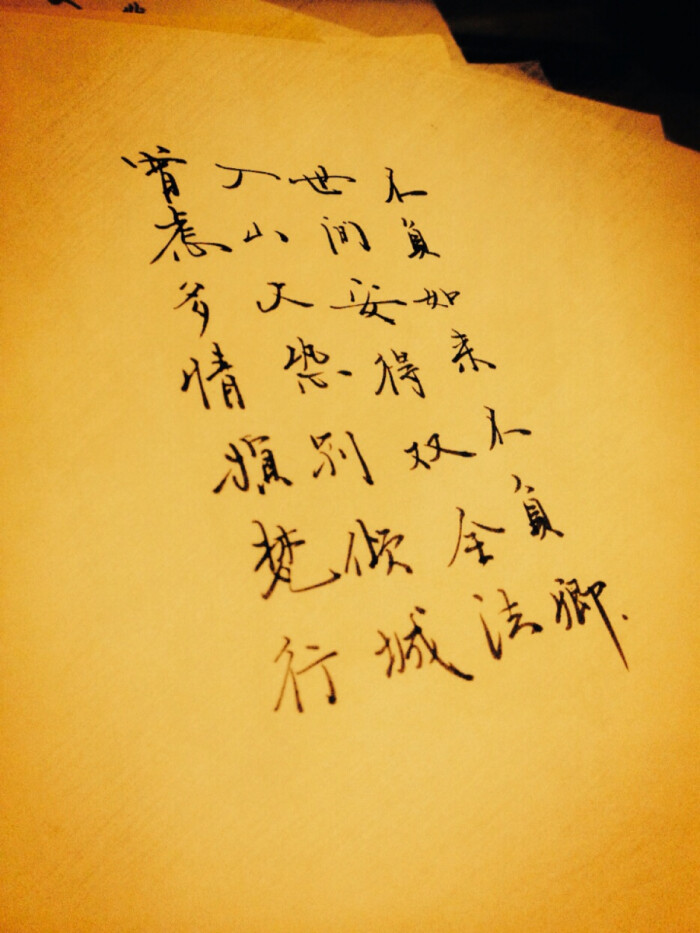 曾虑多情损梵行
入山又恐别倾城
世间安得双全法
不負如来不負卿.